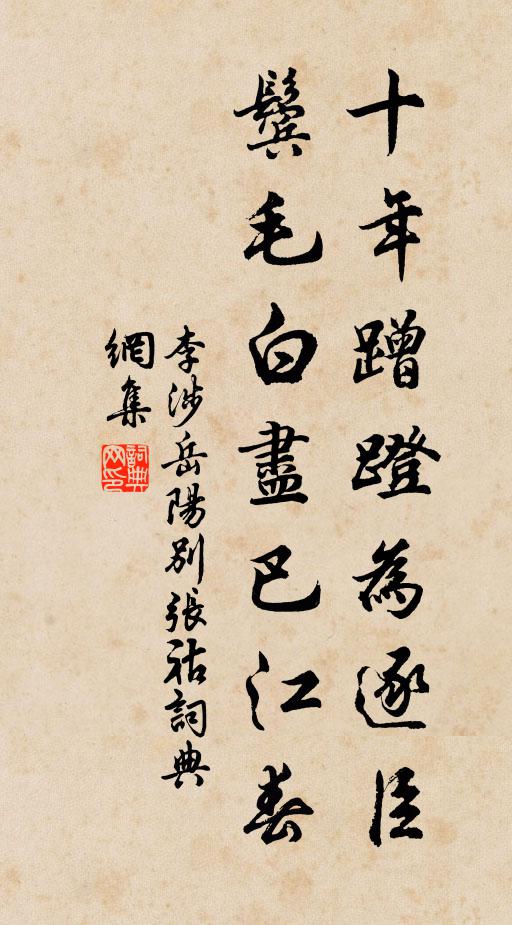 十年蹭蹬為逐臣
鬢毛白盡巴江春
李涉岳陽別張祜詞典
網集
詞典网印